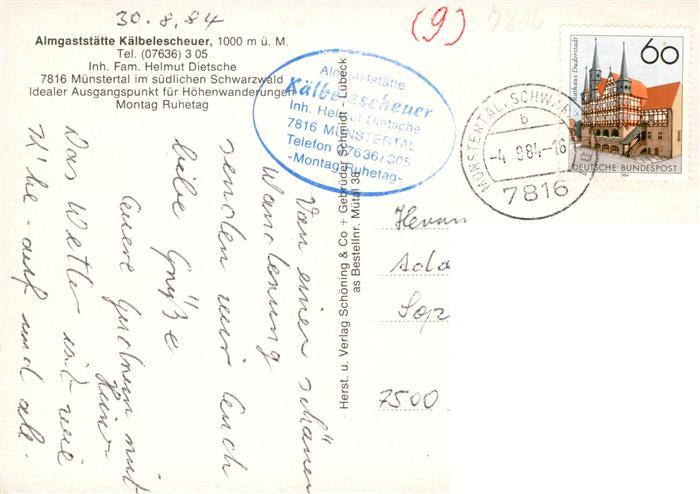 30.8.84
(9)
7816
Almgaststätte Kälbelescheuer, 1000 m ü. M.
Tel. (07636) 3 05
Inh. Fam. Helmut Dietsche
7816 Münstertal im südlichen Schwarzwald
Idealer Ausgangspunkt für Höhenwanderungen
Montag Ruhetag
Almgaststätte
Kälbelescheuer
Inh. Helmut Dietsche
7816 MÜNSTERTAL
Telefon 07636/305
-Montag Ruhetag-
60
Rathaus Duderstadt
DEUTSCHE BUNDESPOST
1984
MÜNSTERTAL, SCHWARZW
b
-4.9.84-16
7816
Von einer schönen
Wanderung
senden wir Euch
liebe Grüße
Euere Gudrun mit
Das Wetter ist wie
auf und ab.
Herst. u. Verlag Schöning & Co + Gebrüder Schmidt - Lübeck
as Bestellnr. Mütal 38
Herrn
7500